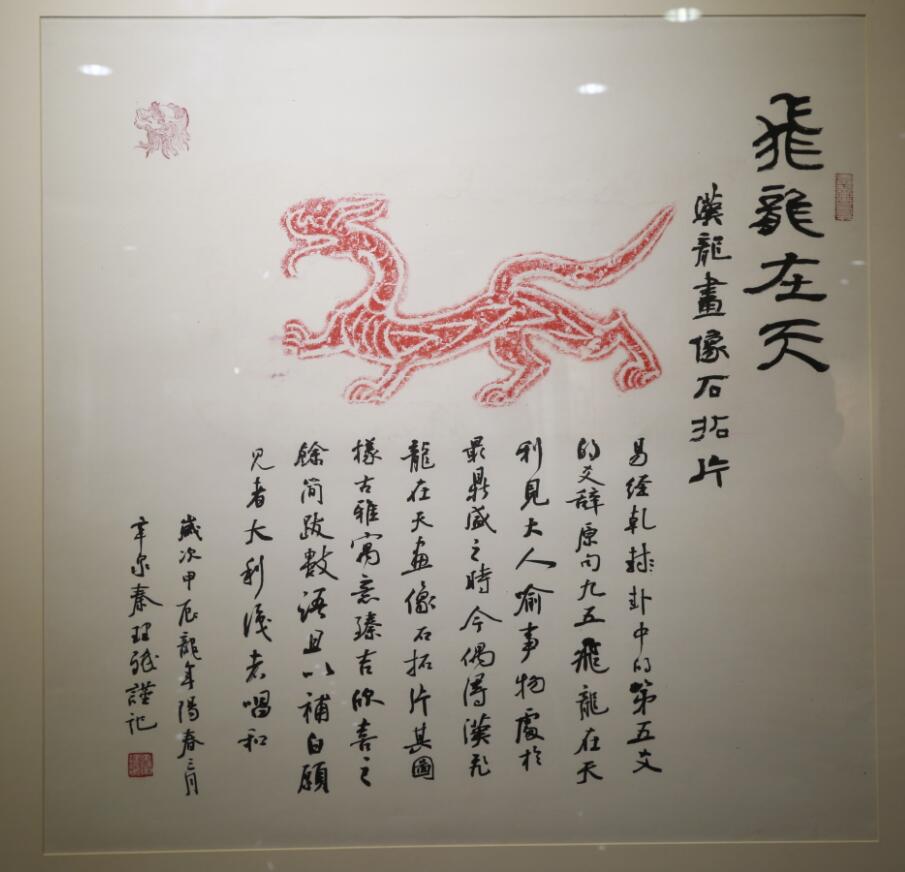 飛龍在天
漢龍畫像石拓片
易經乾 卦中的第五爻
的爻辭原句九五飛龍在天
利見大人喻事物處於
最鼎盛之時今偶得漢飛
龍在天畫像石拓片其圖
樣古雅寓意臻吉欣喜之
餘简跋数语且以補白願
見者大利識者唱和
歲次甲辰龍年陽春三月
辛 秦 謹記